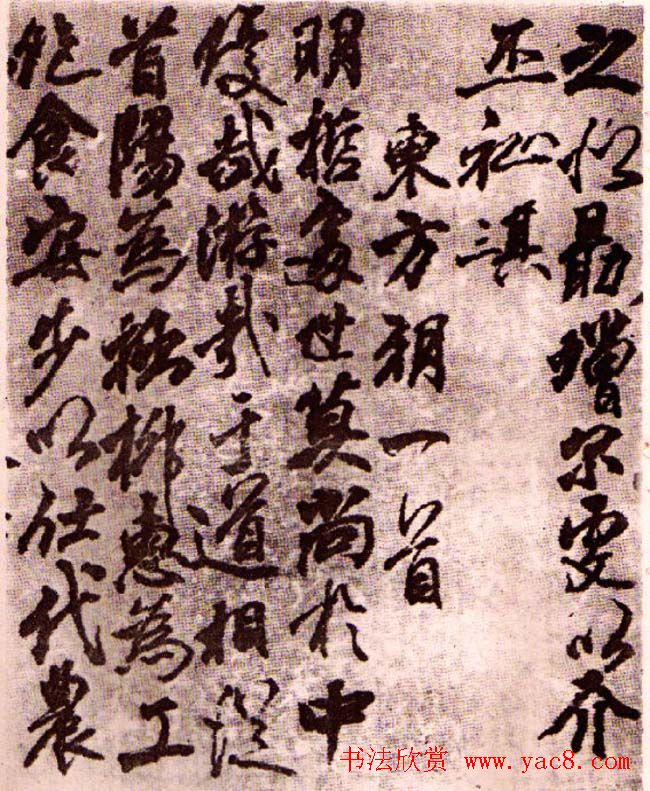 之似勗增尔虔以介
丕祉其三
東方朔一首
明哲處世莫尚於中
優哉游哉于道相從
首陽為拙柳惠為工
飽食安步以仕代農
书法欣赏 www.yac8.com